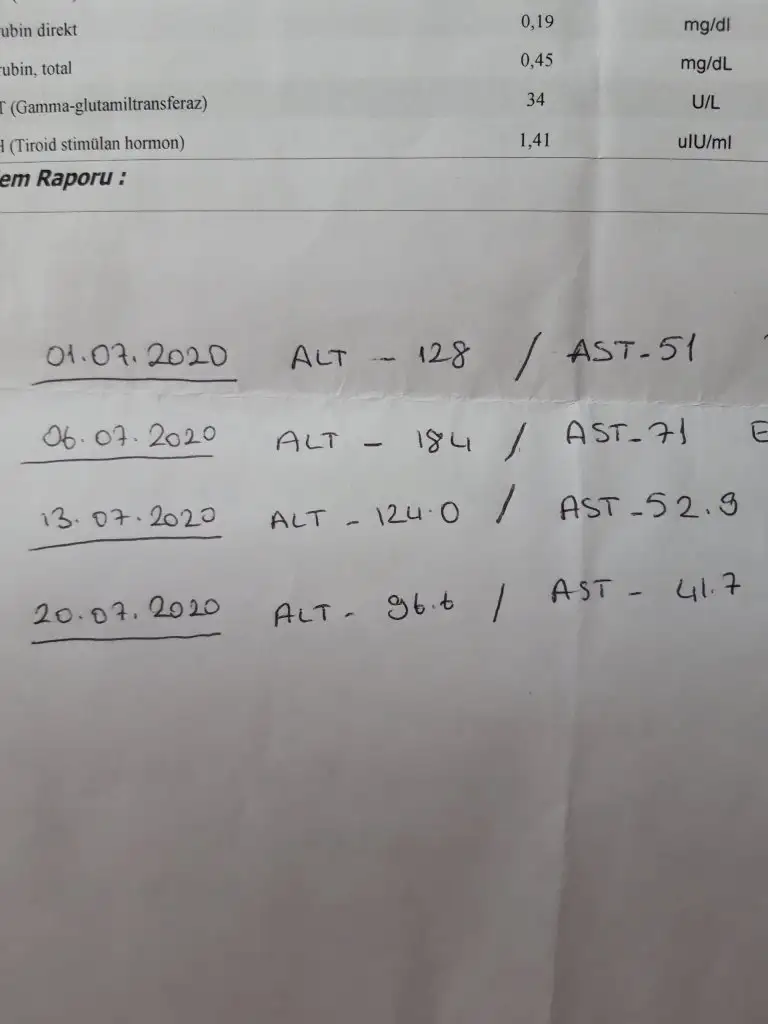 ubin direkt 0,19 mg/dl
rubin, total 0,45 mg/dL
T (Gamma-glutamiltransferaz) 34 U/L
H (Tiroid stimülan hormon) 1,41 uIU/ml
em Raporu :
01.07.2020 ALT - 128 / AST-51
06.07.2020 ALT - 184 / AST-71 E
13.07.2020 ALT - 124.0 / AST-52.9
20.07.2020 ALT - 96.6 / AST - 41.7